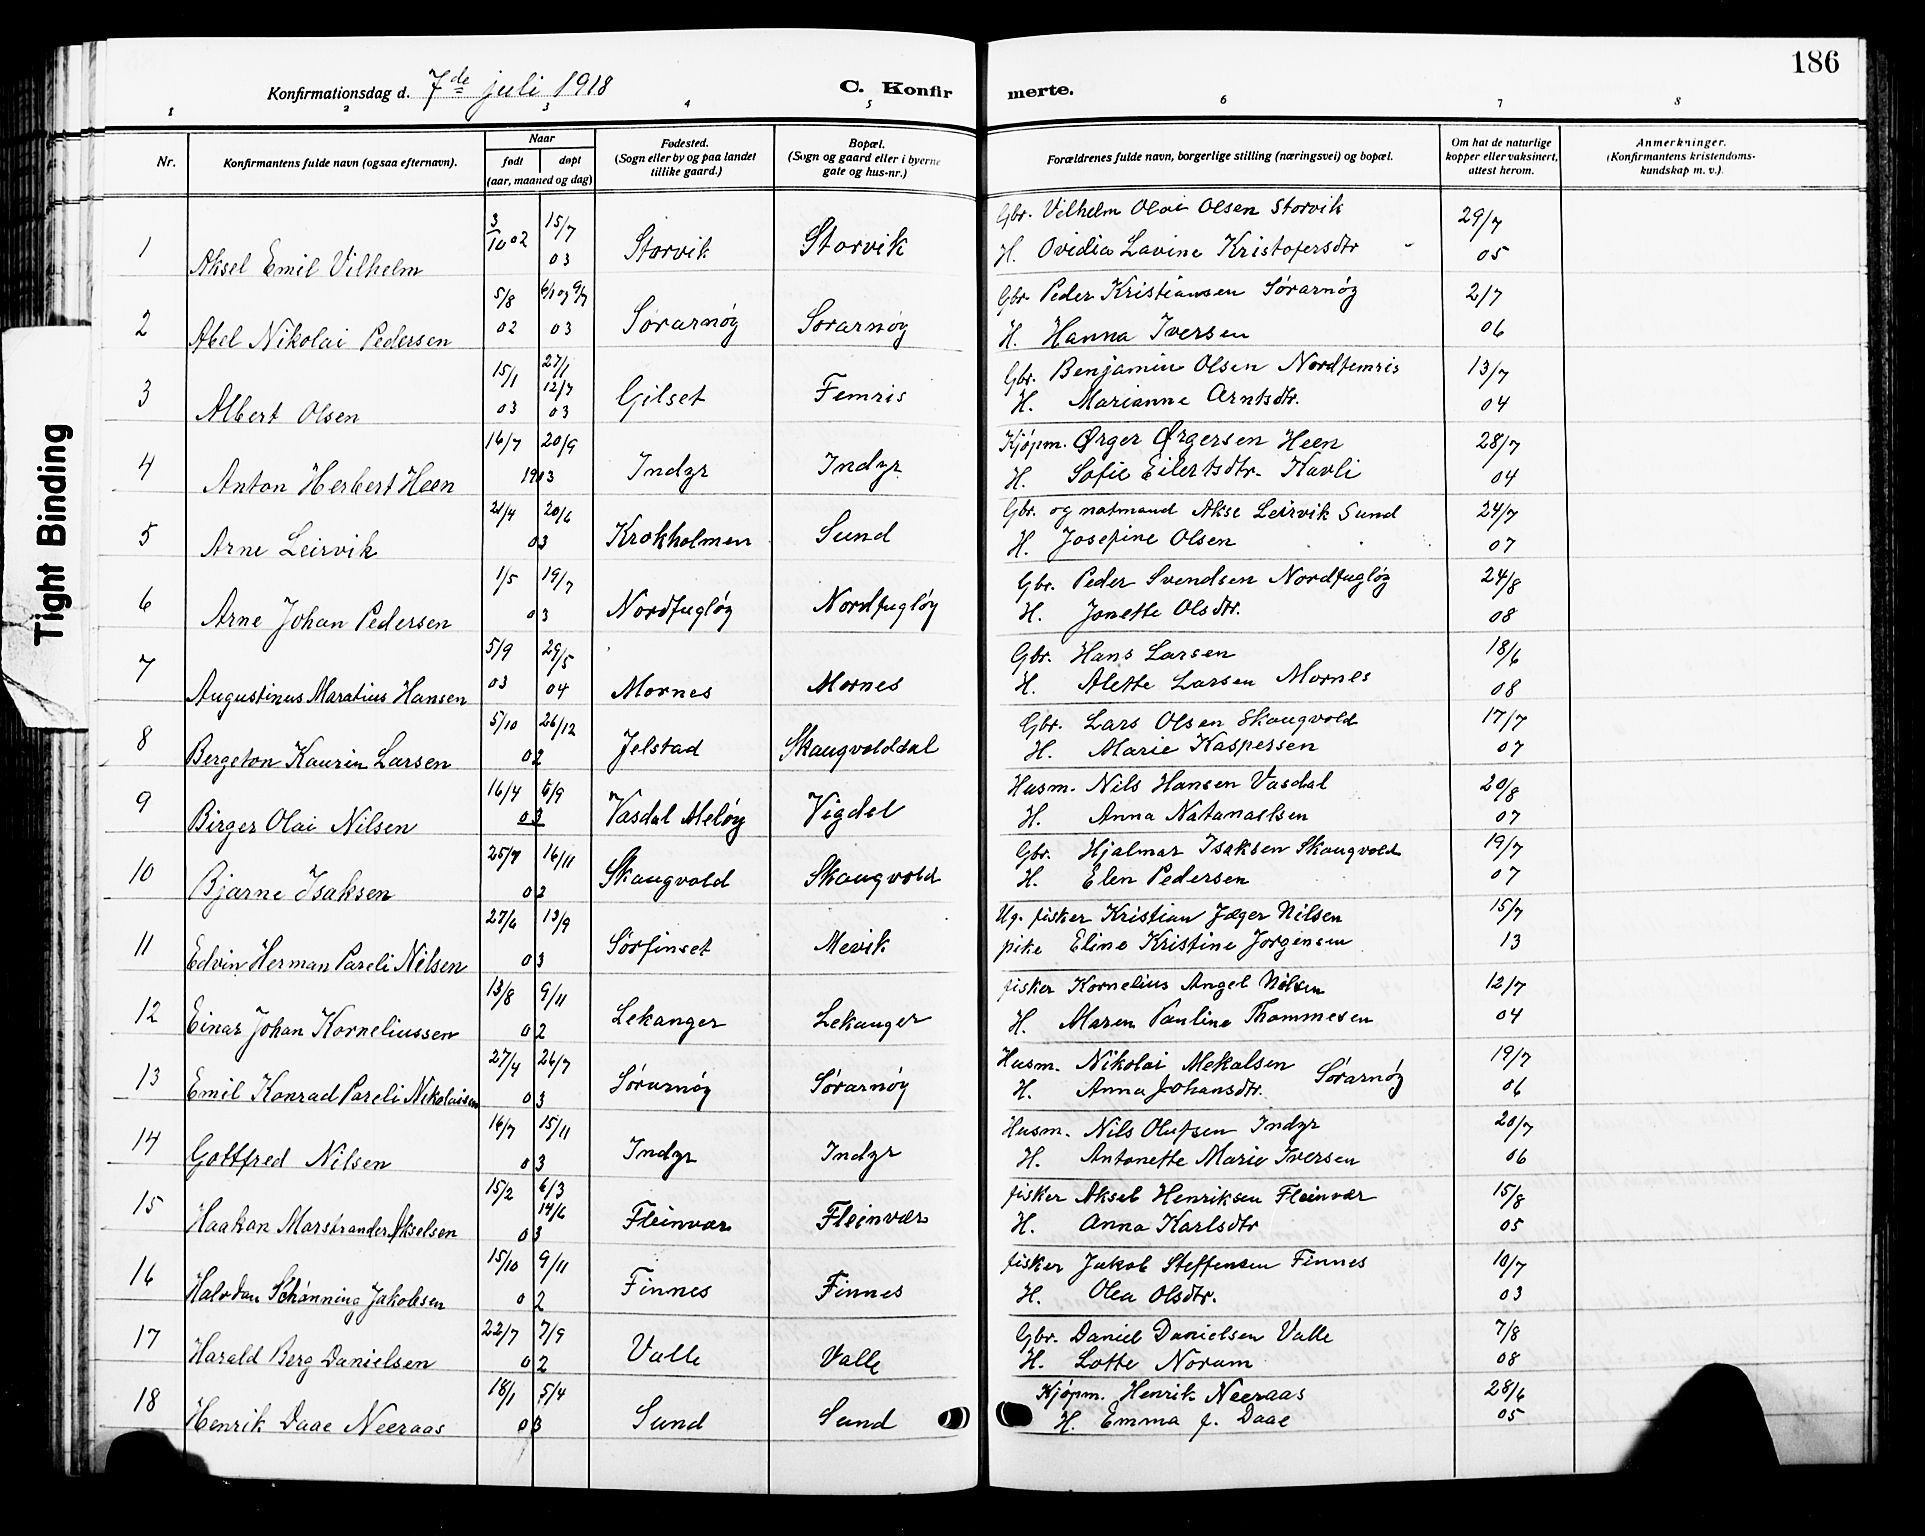 186
Konfirmationsdag d. 7de juli 1918 C. Konfirmerte.
1 2 3 4 5 6 7 8
Nr. Konfirmantens fulde navn (ogsaa efternavn). Naar født døpt (aar, maaned og dag) Fødested. (Sogn eller by og paa landet tillike gaard.) Bopæl. (Sogn og gaard eller i byerne gate og hus-nr.) Forældrenes fulde navn, borgerlige stilling (næringsvei) og bopæl. Om hat de naturlige kopper eller vaksinert, attest herom. Anmerkninger. (Konfirmantens kristendomskundskap m. v.).
Tight Binding
1 Aksel Emil Vilhelm 3/10 02 15/7 03 Storvik Storvik Gbr. Vilhelm Olai Olsen Storvik 29/7
H. Ovidia Lavine Kristofersdtr 05
2 Abel Nikolai Pedersen 5/8 02 03 Sørarnøy Sørarnøy Gbr. Peder Kristiansen Sørarnøy 2/7
H. Hanna Iversen 06
3 Albert Olsen 15/1 03 27/1 12/7 03 Gilset Femris Gbr. Benjamin Olsen Nordfemris 13/7
H. Marianne Arntsdtr. 04
4 Anton Herbert Heen 16/7 20/9 1903 Indyr Indyr Kjøpm. Ørger Ørgersen Heen 28/7
H. Sofie Eilertsdtr. Kavli 04
5 Arne Leirvik 21/4 20/6 03 Krokholmen Sund Gbr. og notmand Akse Leirvik Sund 24/7
H. Josefine Olsen 07
6 Arne Johan Pedersen 1/5 19/7 03 Nordfugløy Nordfugløy Gbr. Peder Svendsen Nordfugløy 24/8
H. Jonette Olsdtr. 08
7 Augustinus Maratius Hansen 5/9 03 29/5 04 Mornes Mornes Gbr. Hans Larsen 18/6
H. Alette Larsen Mornes 08
8 Bergeton Kaurin Larsen 5/10 26/12 02 Jelstad Skaugvolddal Gbr. Lars Olsen Skaugvold 17/7
H. Marie Kaspersen 07
9 Birger Olai Nilsen 16/4 6/9 03 Vasdal Meløy Vigdel Husm. Nils Hansen Vasdal 20/8
H. Anna Natanaelsen 07
10 Bjarne Isaksen 25/7 16/11 02 Skaugvold Skaugvold Gbr. Hjalmar Isaksen Skaugvold 19/7
H. Elen Pedersen 07
11 Edvin Herman Pareli Nilsen 27/6 13/9 03 Sørfinset Mevik Ug. fisker Kristian Jæger Nilsen 15/7
pike Eline Kristine Jorgensen 13
12 Einar Johan Korneliussen 13/8 9/11 02 Lekanger Lekanger fisker Kornelius Angel Nilsen 12/7
H. Maren Pauline Thommesen 04
13 Emil Konrad Pareli Nikolaisen 27/4 26/7 03 Sørarnøy Sørarnøy Husm. Nikolai Mekalsen Sørarnøy 19/7
H. Anna Johansdtr. 06
14 Gottfred Nilsen 16/7 15/11 03 Indyr Indyr Husm. Nils Olufsen Indyr 20/7
H. Antonette Marie Iversen 06
15 Haakon Marstrander Akselsen 15/2 6/3 14/6 03 Fleinvær Fleinvær fisker Aksel Henriksen Fleinvær 15/8
H. Anna Karlsdtr 05
16 Halvdan Schønning Jakobsen 15/10 9/11 02 Finnes Finnes fisker Jakob Steffensen Finnes 10/7
H. Olea Olsdtr. 03
17 Harald Berg Danielsen 22/7 7/9 02 Valle Valle Gbr. Daniel Danielsen Valle 7/8
H. Lotte Noram 08
18 Henrik Daae Neeraas 18/1 5/4 03 Sund Sund Kjøpm. Henrik Neeraas 28/6
H. Emma f. Daae 05